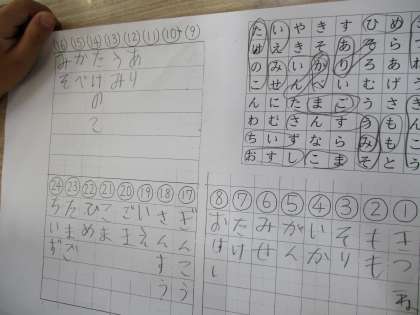 ⑯⑮⑭⑬⑫⑪⑩⑨
みかたうあ
そべけみり
の
こ
たいやきすひめ
けえきそあそら
のみいかりろあれ
こせんべいむげう
んにたまごうさき
わむさんすうもん
ちいずならみもこ
おすしこまそとう
㉔㉓㉒㉑⑳⑲⑱⑰
ちたひこいさぎ
いまめままえんん
ずごすこ
うう
⑧⑦⑥⑤④③②①
おたみがいそもき
はけせんかりもつ
しね